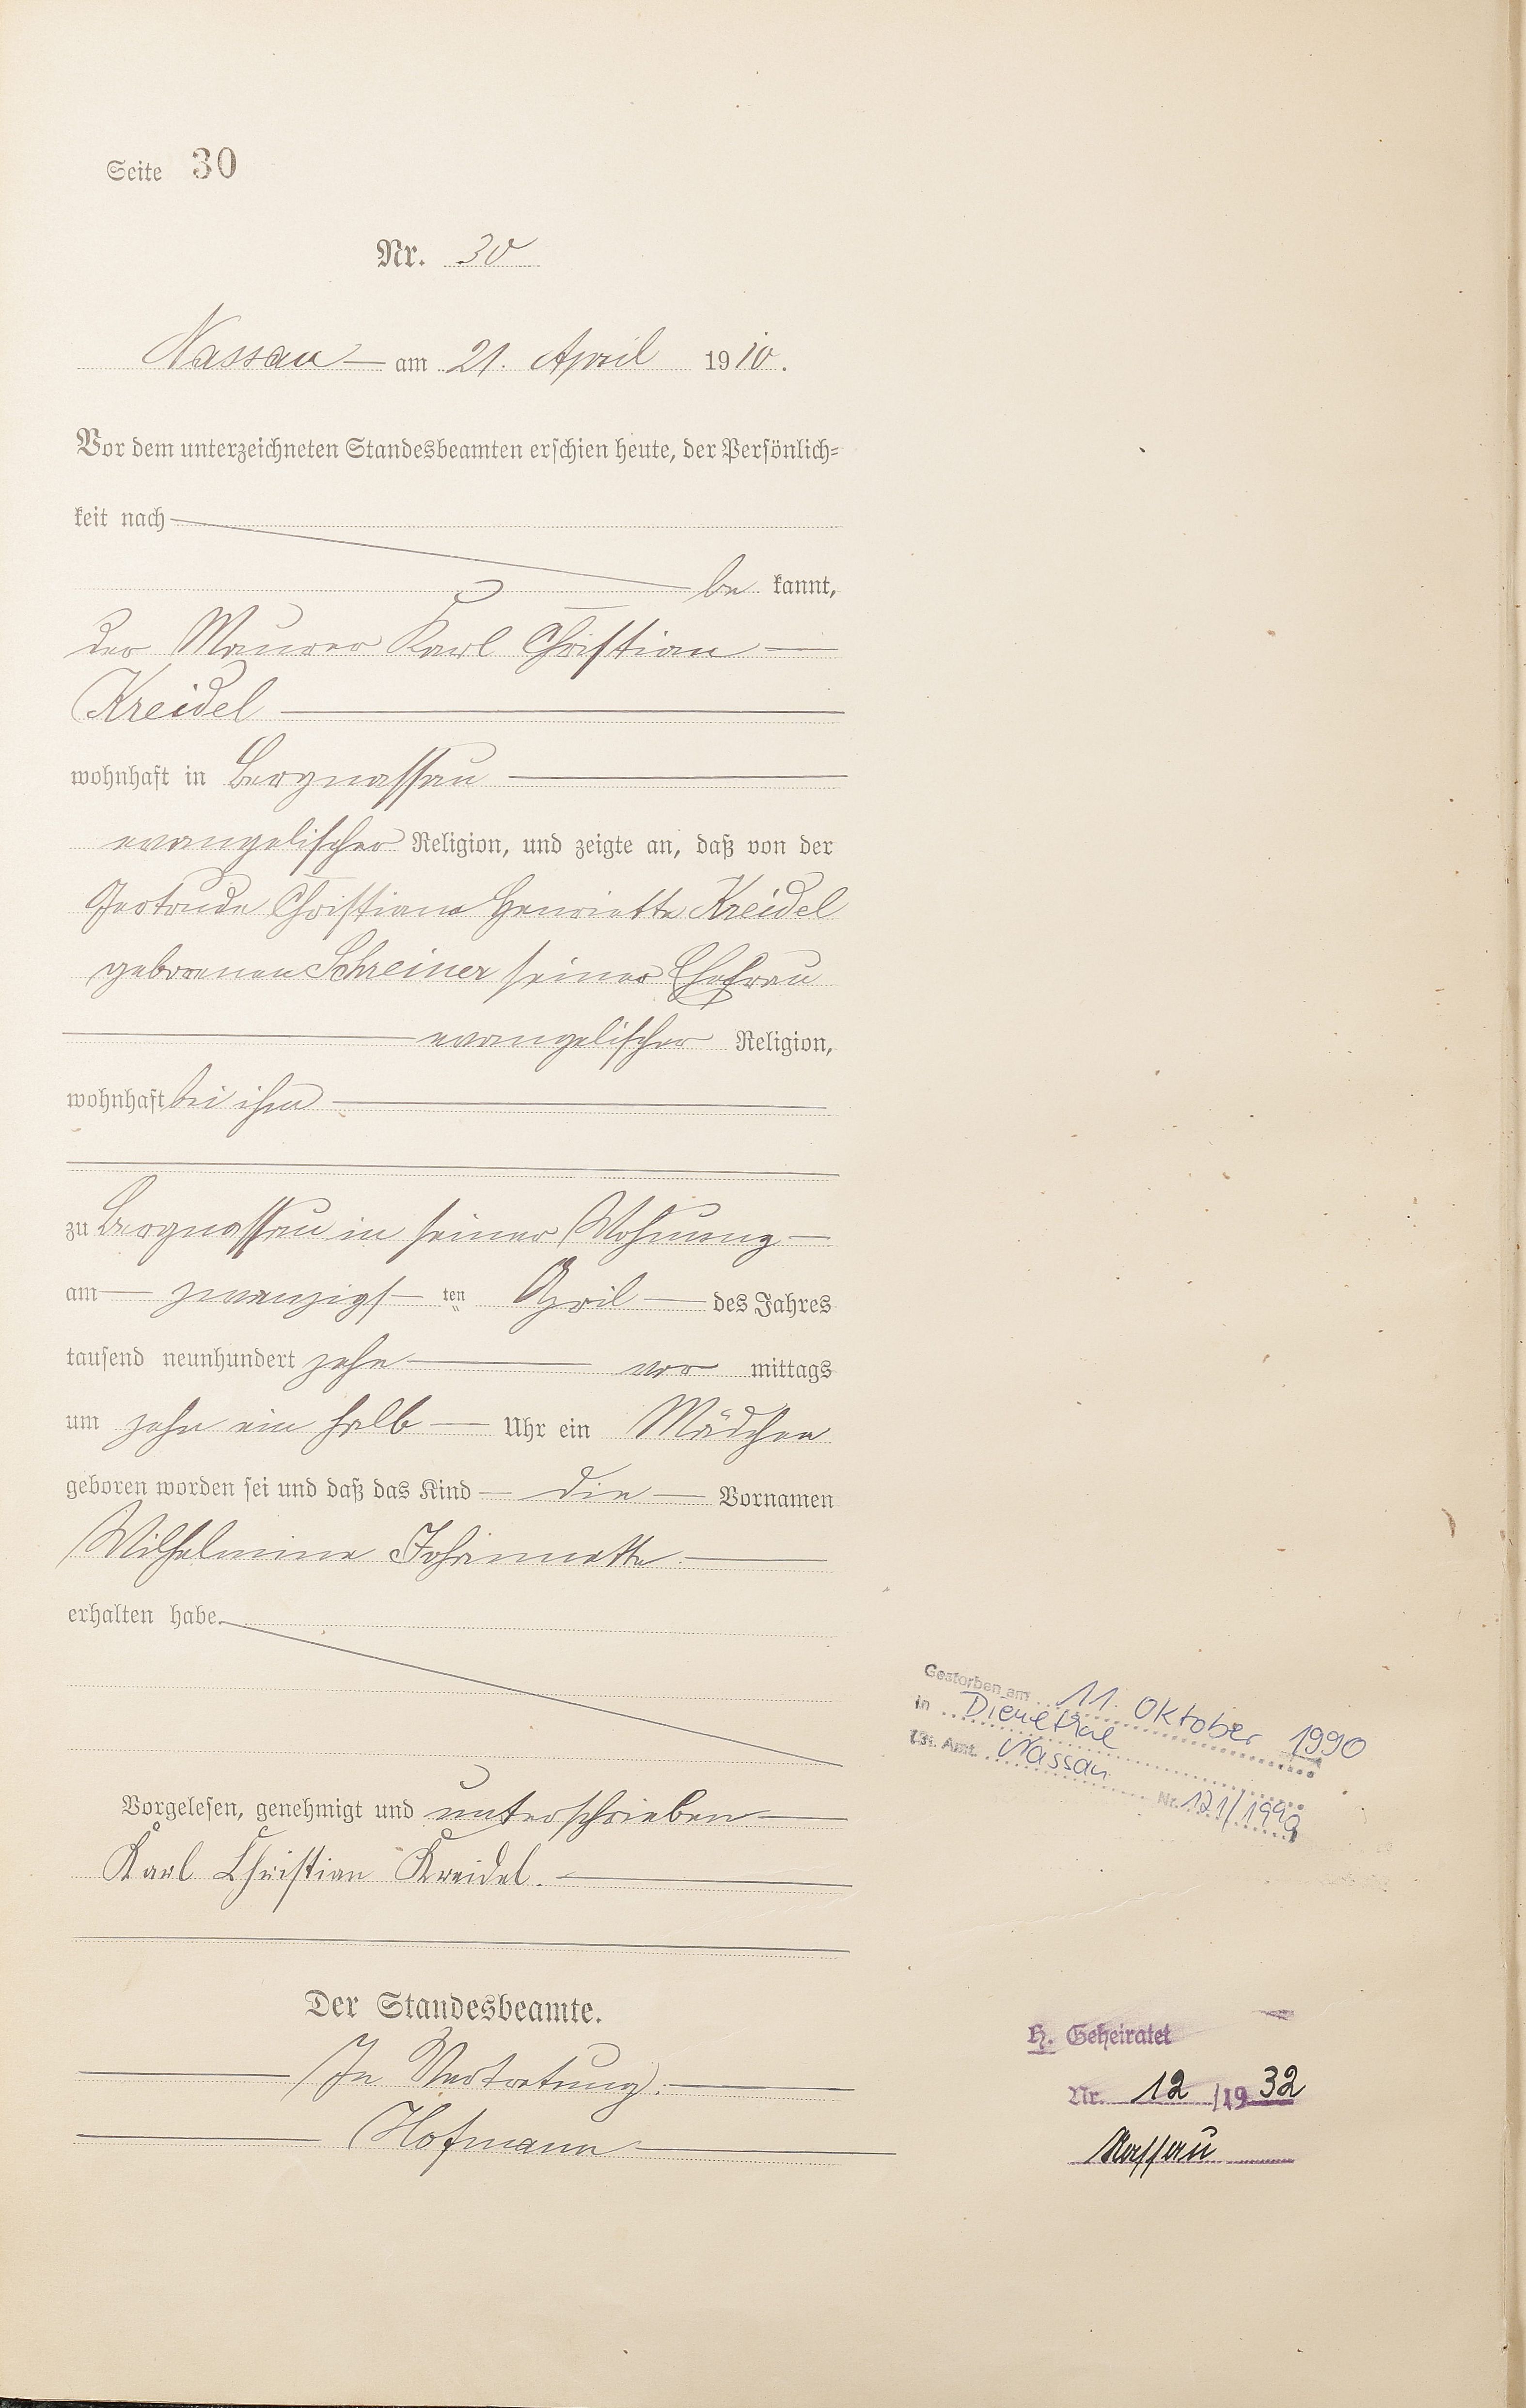 Seite 30
Nr. 30
Nassau am 21. April 1910.
Vor dem unterzeichneten Standesbeamten erschien heute, der Persönlich-
keit nach
be kannt,
der Maurer Karl Christian
Kreidel
wohnhaft in Bergnassau
evangelischer Religion, und zeigte an, daß von der
Gertrude Christiane Henriette Kreidel
geborenen Schreiner seiner Ehefrau
evangelischer Religion,
wohnhaft bei ihm
zu Bergnassau in seiner Wohnung
am zwanzigsten April des Jahres
tausend neunhundert zehn vor mittags
um zehn ein halb Uhr ein Mädchen
geboren worden sei und daß das Kind die Vornamen
Wilhelmine Johannette
erhalten habe.
Vorgelesen, genehmigt und unterschrieben
Karl Christian Kreidel.
Der Standesbeamte.
In Vertretung.
Hofmann
Gestorben am 11. Oktober 1990
in Dienethal
St. Amt Nassau Nr. 121/1990
H. Geheiratet
Nr. 12/1932
Nassau